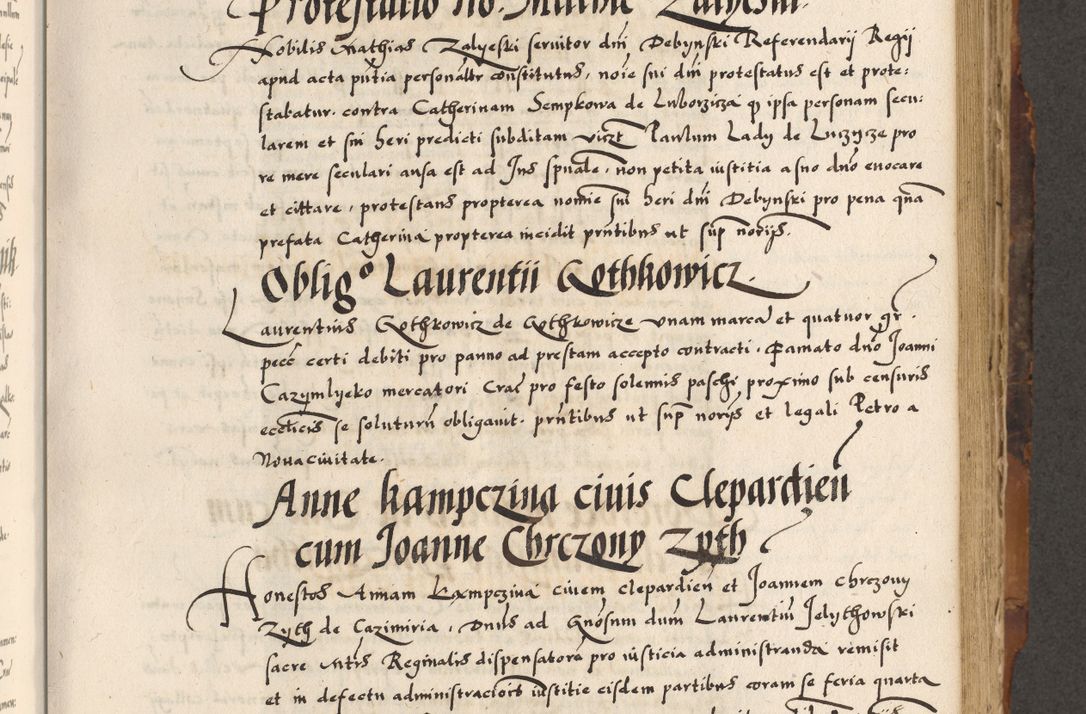 Protestatio no. Mathie Zalyeski.
Nobilis Mathias Zalyeski servitor dni Debynski Referendarij Regij
apud acta pntia personalr constitutus, noie sui dni protestatus est et prote:
stabatur. contra Catherinam Sempkowa de Luborzicza qz ipsa personam secu:
larem et sui heri predicti subditam vizt Paulum Lady de Luczycze pro
re mere seculari ausa est ad Jus spuale, non petita iustitia a suo dno evocare
et cittare, protestans propterea nomie sui heri dni Debynski pro pena qua
prefata Catherina propterea incidit pntibus ut sup norijs.
Obligo Laurentii Gothkowicz.
Laurentius Gothkowicz de Gothkowicze unam marca et quatuor gr.
pecc certi debiti pro panno ad prestam accepto contracti. Famato dno Joanni
Cazymlyeko mercatori Crac pro festo solennis paschj proximo sub censuris
ecclicis se soluturu obligavit. pntibus ut sup norijs et legali Petro a
Nova civitate.
Anne Kampczina civis Clepardien
cum Joanne Chrczony Zyth
Honestos Annam Kampczina civem clepardien et Joannem chrczony
Zyth de Cazimiria, Dnus ad Gnosum dum Laurentiu Jelythowski
sacre Mtis Reginalis dispensatore pro iusticia administranda remisit
et in defectu administracionis iustitie eisdem partibus coram se feria quarta